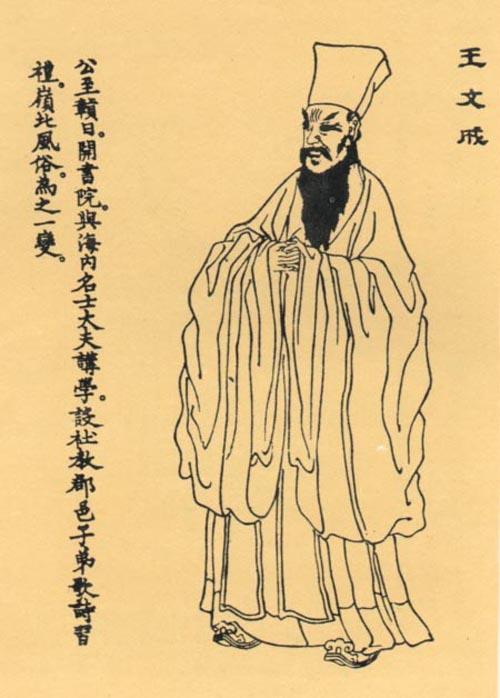 王文成
公至贛日。開書院。與海内名士大夫講學。設社教郡邑子弟歌詩習
禮。嶺北風俗。為之一變。